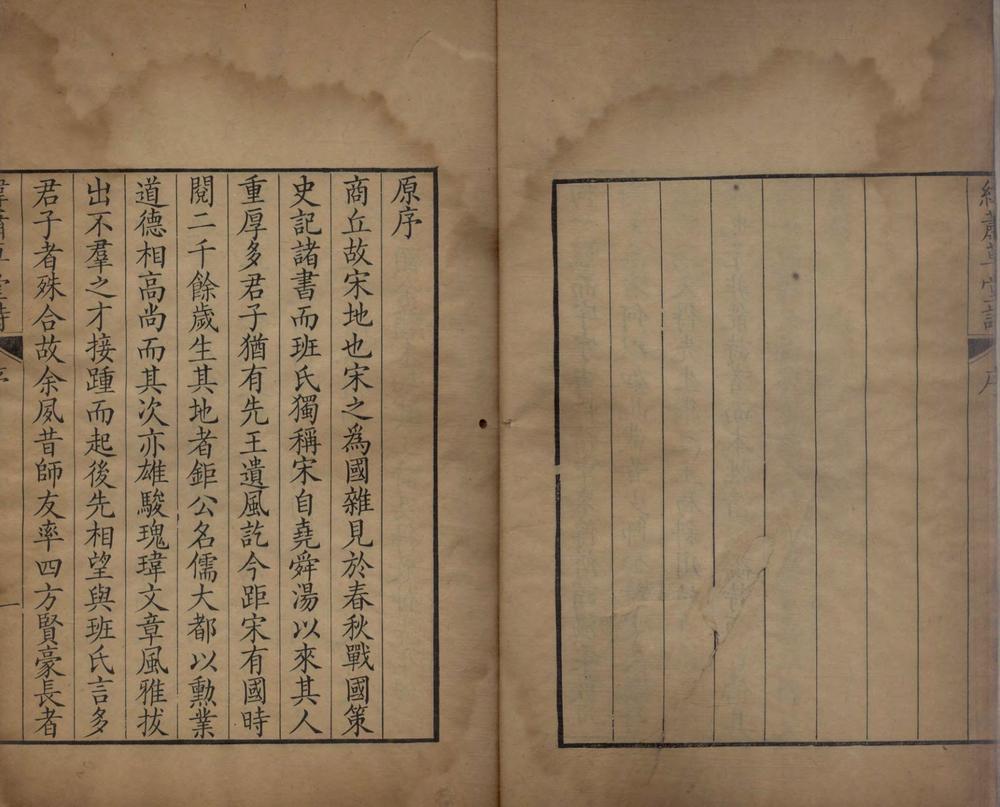 原序
商丘故宋地也宋之為國雜見於春秋戰國策
史記諸書而班氏獨稱宋自堯舜湯以來其人
重厚多君子猶有先王遺風訖今距宋有國時
閱二千餘歲生其地者鉅公名儒大都以勲業
道德相高尚而其次亦雄駿瑰瑋文章風雅拔
出不羣之才接踵而起後先相望與班氏言多
君子者殊合故余夙昔師友率四方賢豪長者
蕭草堂詩
序
一